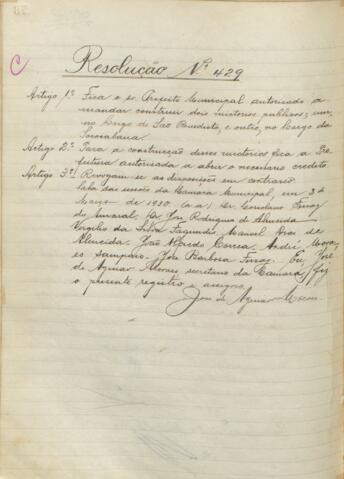 C
Resolução Nº 429
Artigo 1º Fica o Sr. Prefeito Municipal autorizado a
mandar construir dois mictorios publicos; um,
no Largo de São Benedicto, e outro, no Largo da
Sorocabana.
Artigo 2º Para a construcção desses mictorios fica a Pre
feitura autorizada a abrir o necessario credito.
Artigo 3º Revogam-se as disposições em contrario.
Sala das sessões da Camara Municipal, em 3 de
Março de 1930. (a.a.) Dr Coriolano Ferraz
do Amaral. José Rodrigues de Almeida
Vergilio da Silva Fagundes, Manoel Dias de
Almeida. João Alfredo Correa. André Mora-
es Sampaio. José Barbosa Ferraz. Eu, José
de Aguiar Moraes secretario da Camara, fiz
o presente registro e assigno.
José de Aguiar Moraes